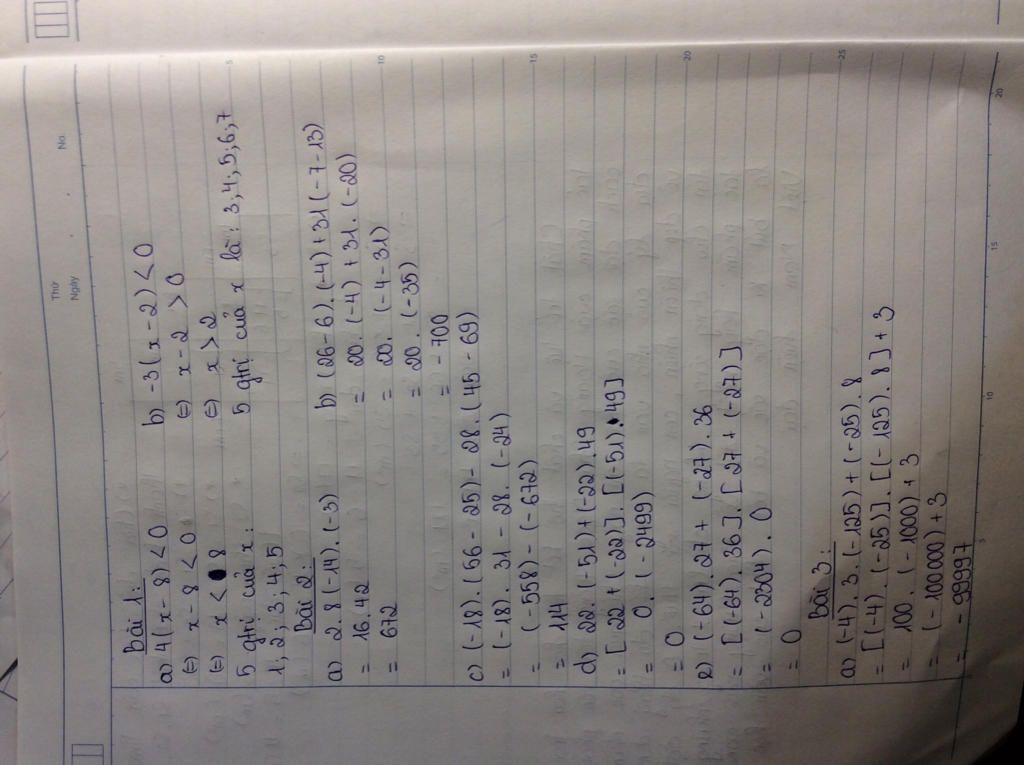 Thứ
Ngày
No.
Bài 1:
a) 4(x - 8) < 0
(=) x - 8 < 0
(=) x < 8
5 gtrị của x:
1; 2; 3; 4; 5
b) -3(x - 2) < 0
(=) x - 2 > 0
(=) x > 2
5 gtrị của x là: 3; 4; 5; 6; 7
Bài 2:
a) 2. 8 (-14). (-3)
= 16. 42
= 672
b) (26 - 6). (-4) + 31 (-7 - 13)
= 20. (-4) + 31. (-20)
= 20. (-4 - 31)
= 20. (-35)
= -700
c) (-18). (56 - 25) - 28. (45 - 69)
= (-18). 31 - 28. (-24)
= (-558) - (-672)
= 114
d) 22. (-51) + (-22). 49
= [22 + (-22)]. [(-51). 49]
= 0. (-2499)
= 0
e) (-64). 27 + (-27). 36
= [(-64). 36]. [27 + (-27)]
= (-2304). 0
= 0
Bài 3:
a) (-4). 3. (-125) + (-25). 8
= [(-4). (-25)]. [(-125). 8] + 3
= 100. (-1000) + 3
= (-100000) + 3
= -99997
5
10
15
20
25
5
10
15
20